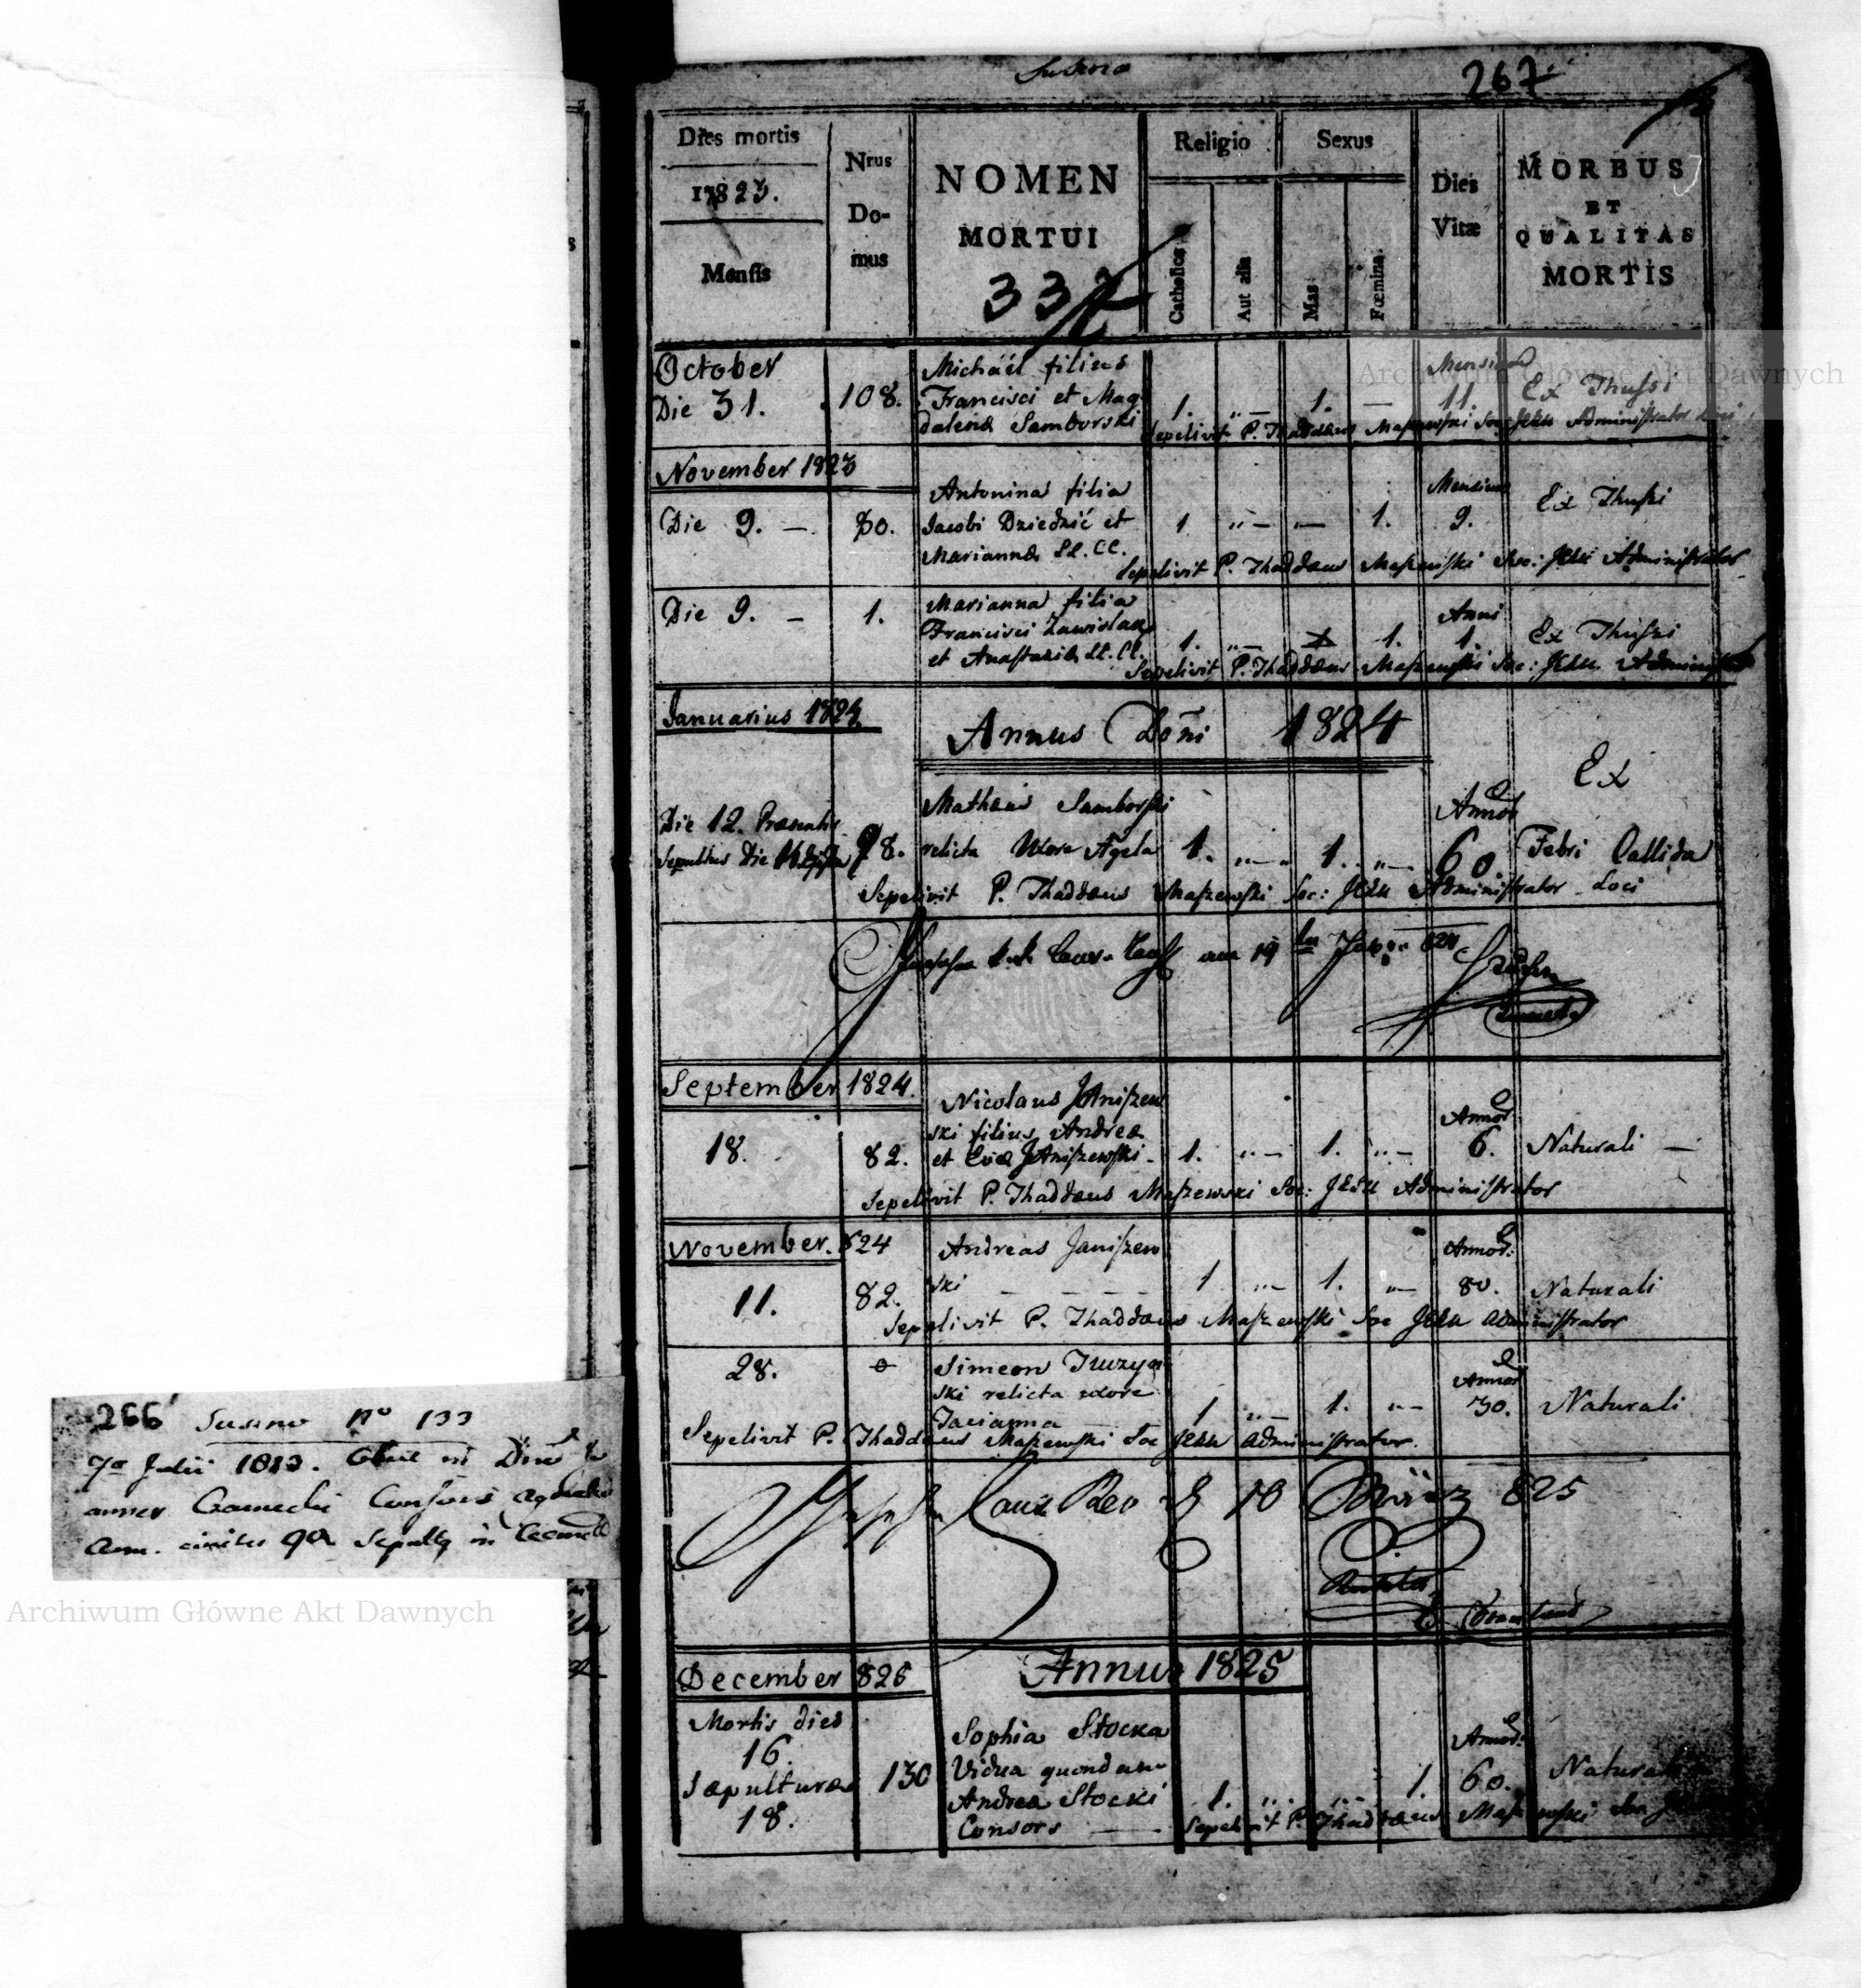 267
Dies mortis
1823.
Mensis
Nrus
Do-
mus
NOMEN
MORTUI
337
Religio
Catholica
Aut alia
Sexus
Mas
Fœmina.
Dies
Vitæ
MORBUS
ET
QUALITAS
MORTIS
October
Die 31.
108.
Michaël filius
Francisci et Mag
dalena Samborski
1. „ — 1. —
Mensium
11.
Ex Thussi
Sepelivit P. Thaddæus Maszewski Soc: Jesu Administrator Loci
November 1823
Die 9. —
80.
Antonina filia
Jacobi Dziedzić et
Marianna LL. CC.
1 „ — „ — 1.
Mensium
9.
Ex Thussi
Sepelivit P. Thaddæus Maszewski Soc: Jesu Administrator
Die 9. —
1.
Marianna filia
Francisci Zawislak
et Anastasia LL. CC.
1. „ — 1.
Anni
1.
Ex Thussi
Sepelivit P. Thaddæus Maszewski Soc: Jesu Administ
Januarius 1824
Annus Doñi 1824
Die 12. Præsentis
Sepultus Die
98.
Mathæus Samborski
relicta Uxore Agela
1. „ — „ 1. „ —
Annor
60
Ex
Febri Callida
Sepelivit P. Thaddæus Maszewski Soc: Jesu Administrator Loci
19
824
September 1824.
18.
82.
Nicolaus Janiszew
ski filius Andrea
et Eva Janiszewski.
1. „ — 1. „ —
Annor.
6.
Naturali —
Sepelivit P. Thaddæus Maszewski Soc: Jesu Administrator
November. 824
11.
82.
Andreas Janiszew
ski — — — —
1 „ — 1. „ —
Annor:
80.
Naturali
Sepelivit P. Thaddæus Maszewski Soc Jesu Administrator
28.
0
Simeon
ski relicta uxore
1 „ — 1. „ —
Annor
30.
Naturali
Sepelivit P. Thaddæus Maszewski Soc Jesu Administrator.
10 März 825
December 825
Annus 1825
Mortis dies
16.
Sæpulturæ
18.
130
Sophia Stocka
Vidua quondam
Andrea Stocki
Consors —
1. „ „ 1.
Annor:
60.
Naturali
Sepelivit P. Thaddæus Maszewski Soc Jesu
266 Susino No 133
7a Julii 1823. Obiit
Consors
Sepulta in
Archiwum Główne Akt Dawnych
Archiwum Główne Akt Dawnych